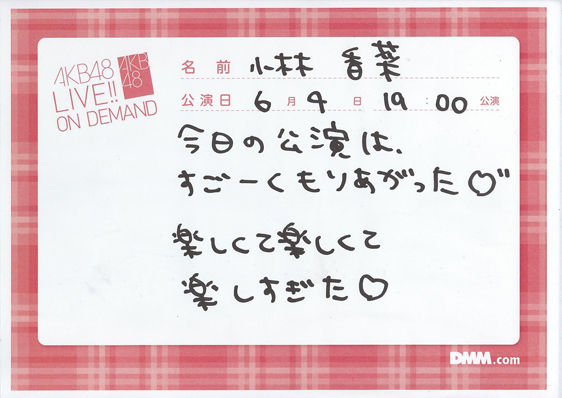 AKB48
LIVE!!
ON DEMAND
AKB
48
名 前 小林 香菜
公演日 6 月 4 日 19:00 公演
今日の公演は、
すごーくもりあがった♡"
楽しくて楽しくて
楽しすぎた♡
DMM.com